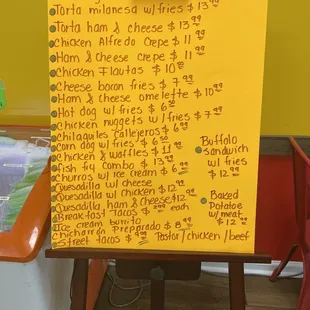 Torta milanesa w/fries $13.99
Torta ham & cheese $13.99
Chicken Alfredo Crepe $11.99
Ham & Cheese crepe $11.99
Chicken Flautas $10
Cheese bacon fries $7.99
Ham & Cheese omelette $10.99
Hot dog w/fries $6.50
Chicken nuggets w/fries $7.99
Chilaquiles Callejeros $6.99
Corn dog w/fries $6.50
Chicken & waffles $11
Fish fry combo $13.99
Churros w/ice cream $6
Quesadilla w/cheese
Quesadilla w/chicken $12.99
Quesadilla ham & cheese $12.99
Breakfast tacos each
Ice cream burrito
Chicharrin Preparado $8.99
Street tacos $ Pastor/chicken/beef
Buffalo
Sandwich
w/fries
$12.99
Baked
Potatoe
w/meat
$12